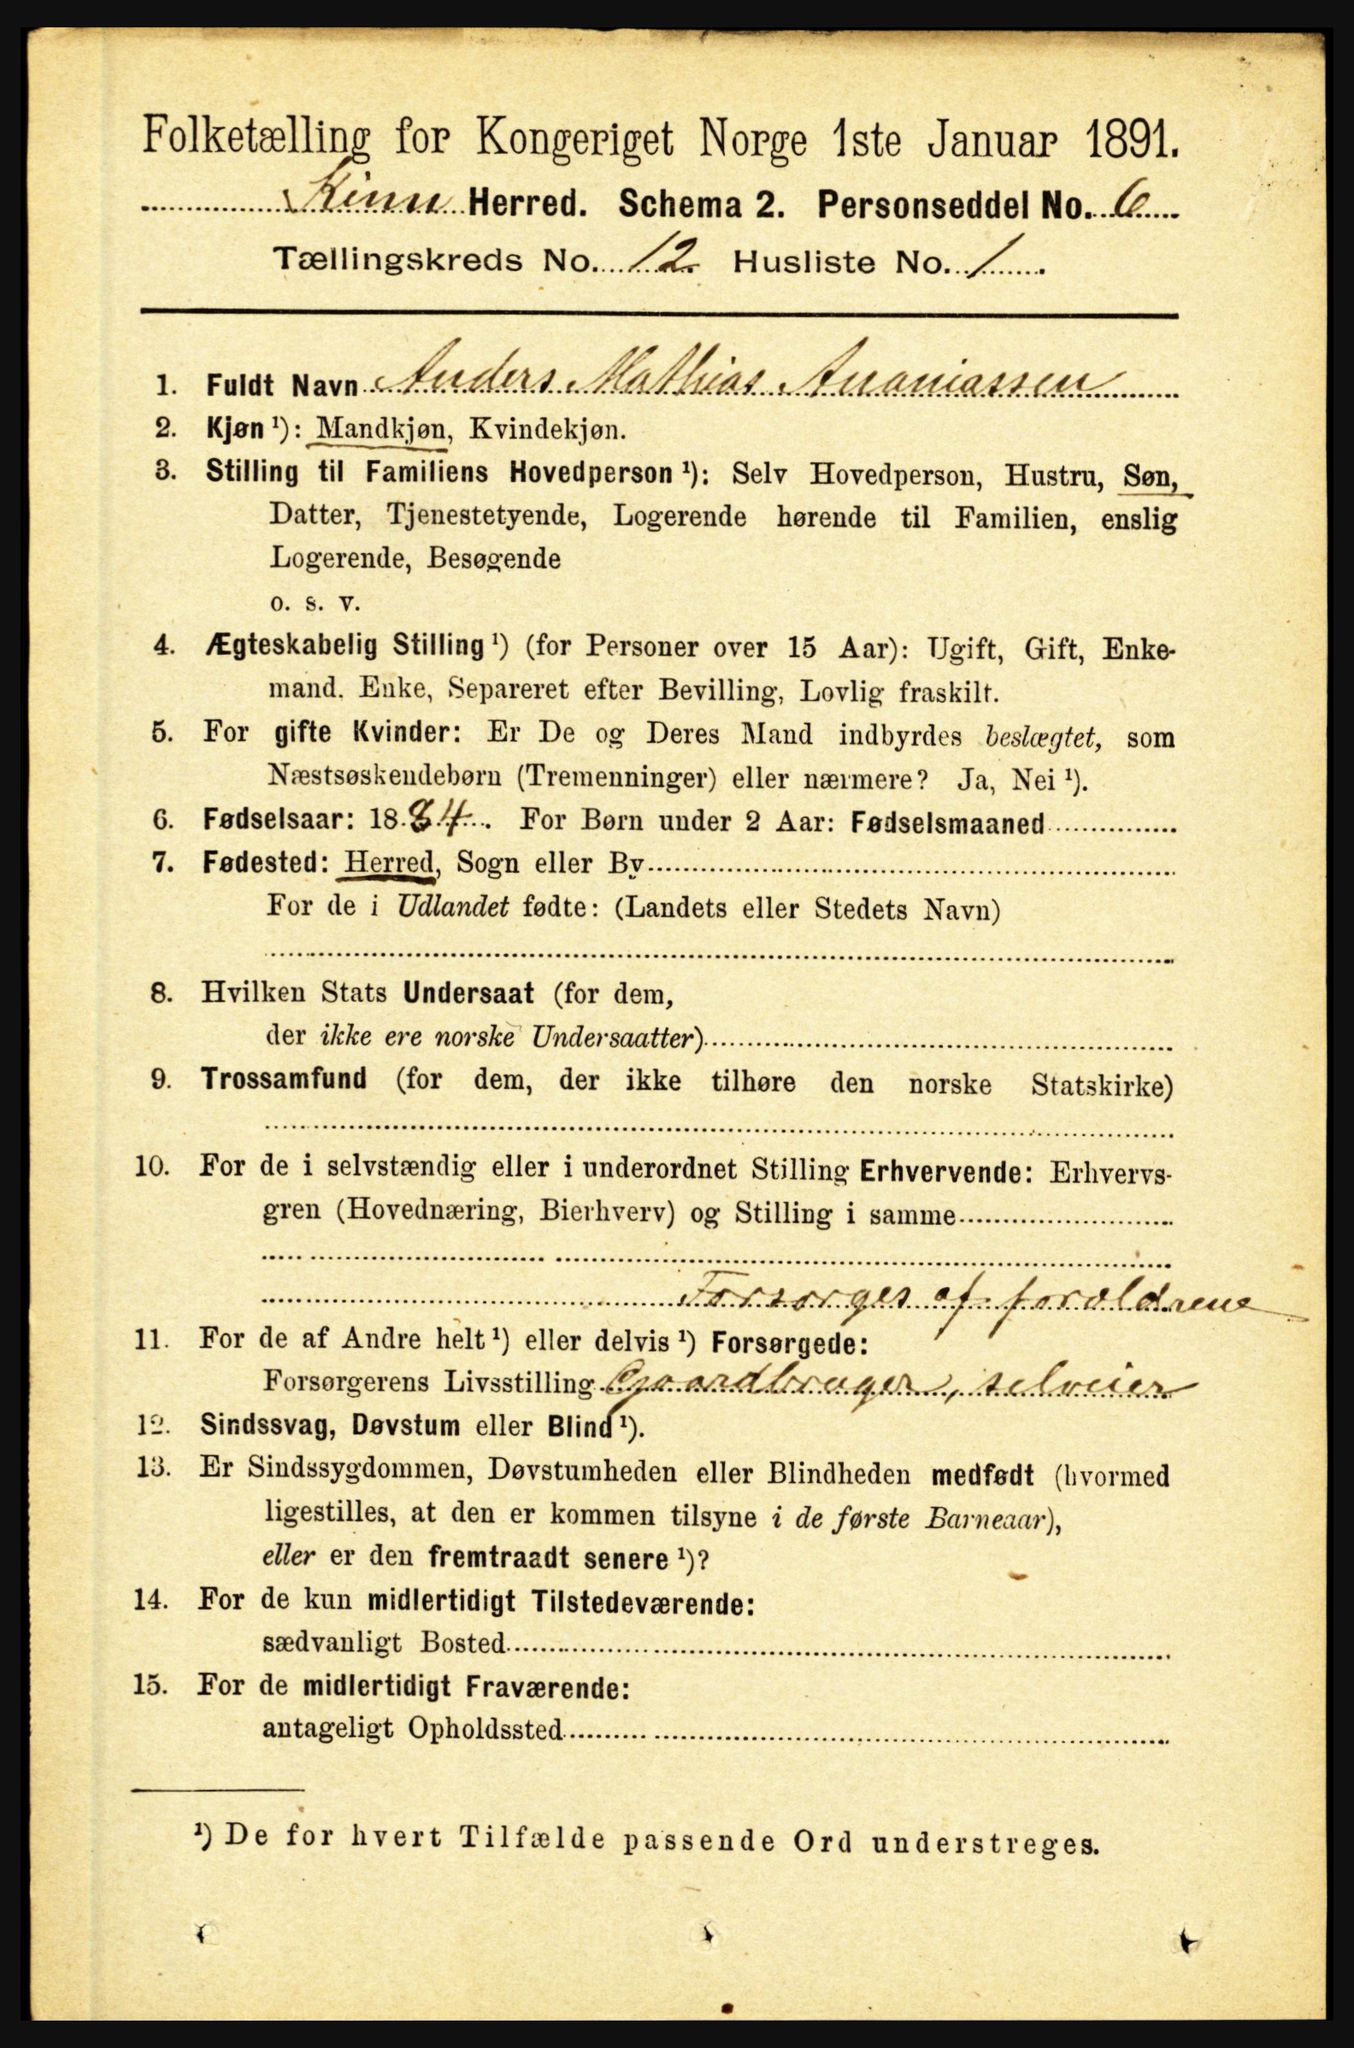 Folketælling for Kongeriget Norge 1ste Januar 1891.
Kinn Herred. Schema 2. Personseddel No. 6
Tællingskreds No. 12 Husliste No. 1
1. Fuldt Navn Anders Mathias Ananiassen
2. Kjøn ¹): Mandkjøn, Kvindekjøn.
3. Stilling til Familiens Hovedperson ¹): Selv Hovedperson, Hustru, Søn,
Datter, Tjenestetyende, Logerende hørende til Familien, enslig
Logerende, Besøgende
o. s. v.
4. Ægteskabelig Stilling ¹) (for Personer over 15 Aar): Ugift, Gift, Enke-
mand, Enke, Separeret efter Bevilling, Lovlig fraskilt.
5. For gifte Kvinder: Er De og Deres Mand indbyrdes beslægtet, som
Næstsøskendebørn (Tremenninger) eller nærmere? Ja, Nei ¹).
6. Fødselsaar: 1884. For Børn under 2 Aar: Fødselsmaaned
7. Fødested: Herred, Sogn eller By
For de i Udlandet fødte: (Landets eller Stedets Navn)
8. Hvilken Stats Undersaat (for dem,
der ikke ere norske Undersaatter)
9. Trossamfund (for dem, der ikke tilhøre den norske Statskirke)
10. For de i selvstændig eller i underordnet Stilling Erhvervende: Erhvervs-
gren (Hovednæring, Bierhverv) og Stilling i samme
Forsorges af foroldrene
11. For de af Andre helt ¹) eller delvis ¹) Forsørgede:
Forsørgerens Livsstilling Gaardbruger, selveier
12. Sindssvag, Døvstum eller Blind ¹).
13. Er Sindssygdommen, Døvstumheden eller Blindheden medfødt (hvormed
ligestilles, at den er kommen tilsyne i de første Barneaar),
eller er den fremtraadt senere ¹)?
14. For de kun midlertidigt Tilstedeværende:
sædvanligt Bosted
15. For de midlertidigt Fraværende:
antageligt Opholdssted
¹) De for hvert Tilfælde passende Ord understreges.